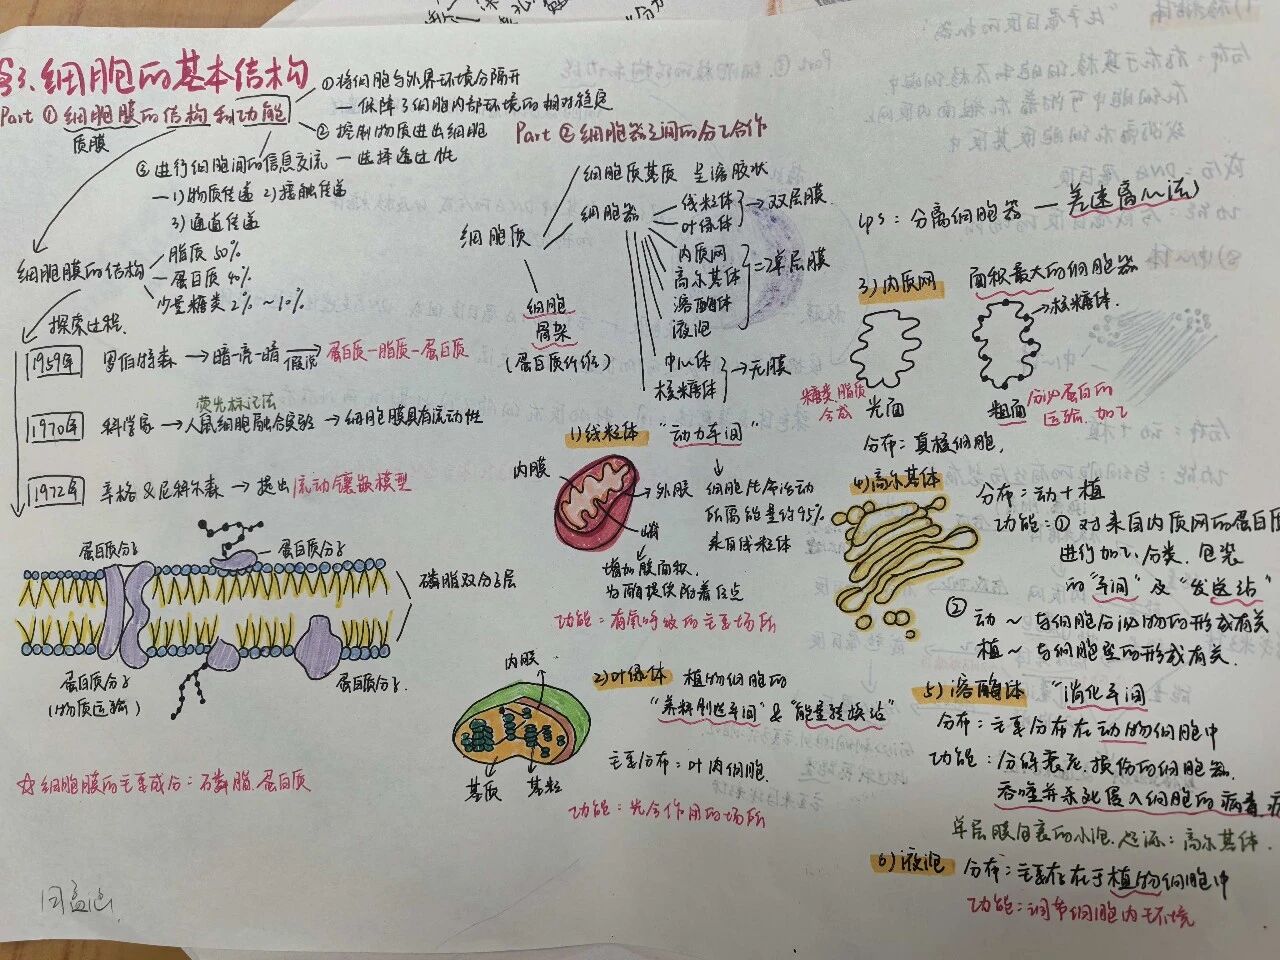 §3.细胞的基本结构
Part ① 细胞膜的结构和功能
质膜
①将细胞与外界环境分隔开
—保障了细胞内部环境的相对稳定
② 控制物质进出细胞
— 选择透过性
③进行细胞间的信息交流
—1)物质传递 2)接触传递
3)通道传递
细胞膜的结构
脂质 50%
蛋白质 40%
少量糖类 2%~10%
探索过程.
1959年 罗伯特森→暗-亮-暗 假说 蛋白质-脂质-蛋白质
荧光标记法
1970年 科学家→人鼠细胞融合实验→细胞膜具有流动性
1972年 辛格&尼科尔森→提出流动镶嵌模型
蛋白质分子
蛋白质分子
磷脂双分子层
蛋白质分子
(物质运输)
蛋白质分子.
☆细胞膜的主要成分:磷脂.蛋白质
Part ② 细胞器之间的分工合作
细胞质
细胞质基质 呈溶胶状
细胞器
线粒体
叶绿体
→双层膜.
内质网
高尔基体
溶酶体
液泡
单层膜
中心体
核糖体
→无膜
细胞
骨架
(蛋白质纤维)
1)线粒体 "动力车间"
内膜
外膜
嵴
细胞生命活动
所需能量约95%
来自线粒体
增加膜面积.
为酶提供附着位点
功能:有氧呼吸的主要场所
2)叶绿体 植物细胞的
"养料制造车间"&"能量转换站"
内膜
基质
基粒
主要分布:叶肉细胞.
功能:光合作用的场所
ps:分离细胞器 — 差速离心法
3)内质网 面积最大的细胞器
核糖体.
糖类.脂质
合成
光面
粗面
分泌蛋白的
运输.加工
分布:真核细胞.
4)高尔基体 分布:动+植
功能:① 对来自内质网的蛋白质
进行加工、分类、包装
的"车间"及"发送站"
② 动~与细胞分泌物的形成有关
植~与细胞壁的形成有关.
5)溶酶体 "消化车间
分布:主要分布在动物细胞中
功能:分解衰老.损伤的细胞器.
吞噬并杀死侵入细胞的病毒.
单层膜包裹的小泡.起源:高尔基体.
6)液泡 分布:主要存在于植物细胞中
功能:调节细胞内环境